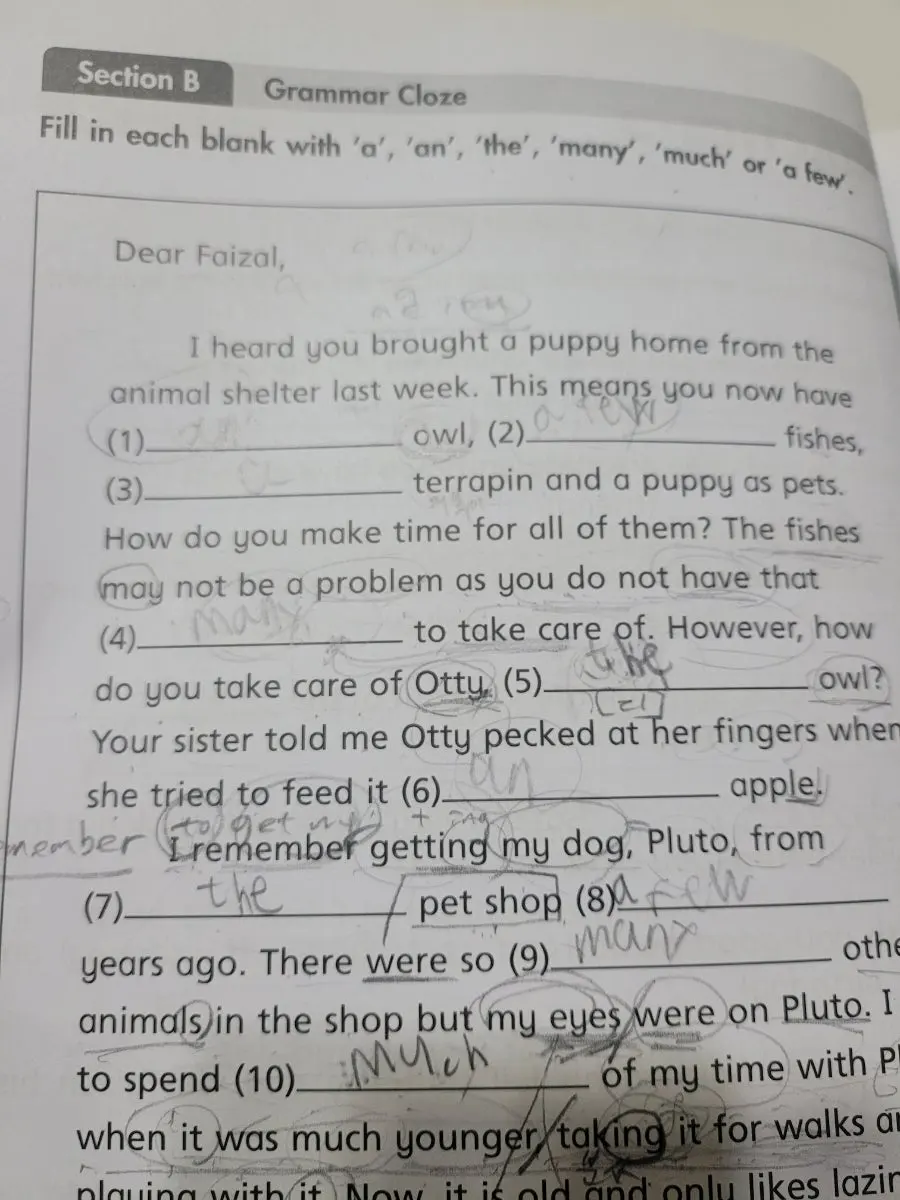 Section B Grammar Cloze
Fill in each blank with 'a', 'an', 'the', 'many', 'much' or 'a few'.
Dear Faizal,
I heard you brought a puppy home from the
animal shelter last week. This means you now have
a few
(1) owl, (2) fishes,
a
(3) terrapin and a puppy as pets.
How do you make time for all of them? The fishes
may not be a problem as you do not have that
many
(4) to take care of. However, how
the
do you take care of Otty, (5) owl?
Your sister told me Otty pecked at her fingers when
an
she tried to feed it (6) apple.
to get my + ing
I remember getting my dog, Pluto, from
the a few
(7) pet shop (8)
many
years ago. There were so (9) othe
animals in the shop but my eyes were on Pluto. I
much
to spend (10) of my time with Pl
when it was much younger, taking it for walks a
playing with it. Now, it is old and only likes lazin